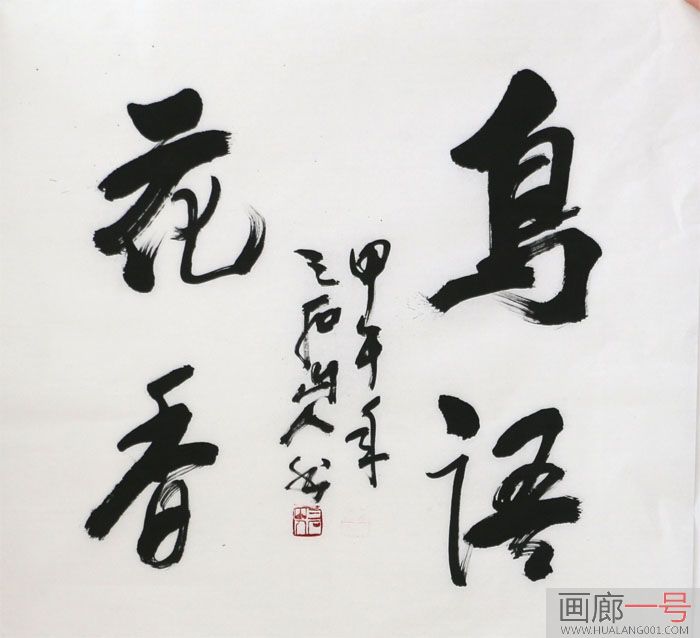 鳥语
花香
甲午年
三石山人书
画廊一号
WWW.HUALANG001.COM